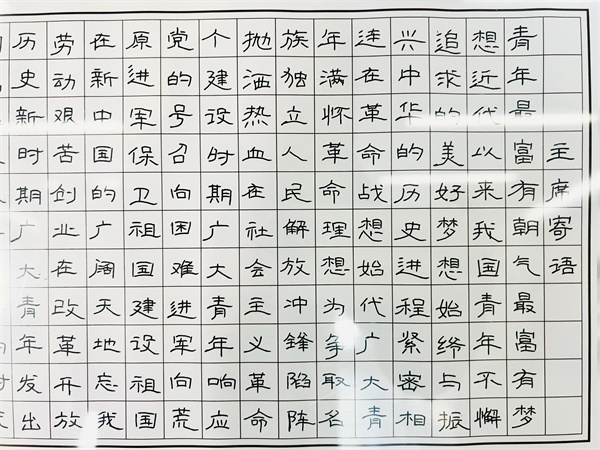 主席寄语
青年最富有朝气最富有梦
想近代以来我国青年不懈
追求的美好梦想始终与振
兴中华的历史进程紧密相
连在革命战想始代广大青
年满怀革命理想为争取名
族独立人民解放冲鋒陷阵
抛洒热血在社会主义革命
个建设时期广大青年响应
党的号召向困难进军向荒
原进军保卫祖国建设祖国
在新中国的广阔天地忘我
劳动艰苦创业在改革开放
历史新时期广大青年发出